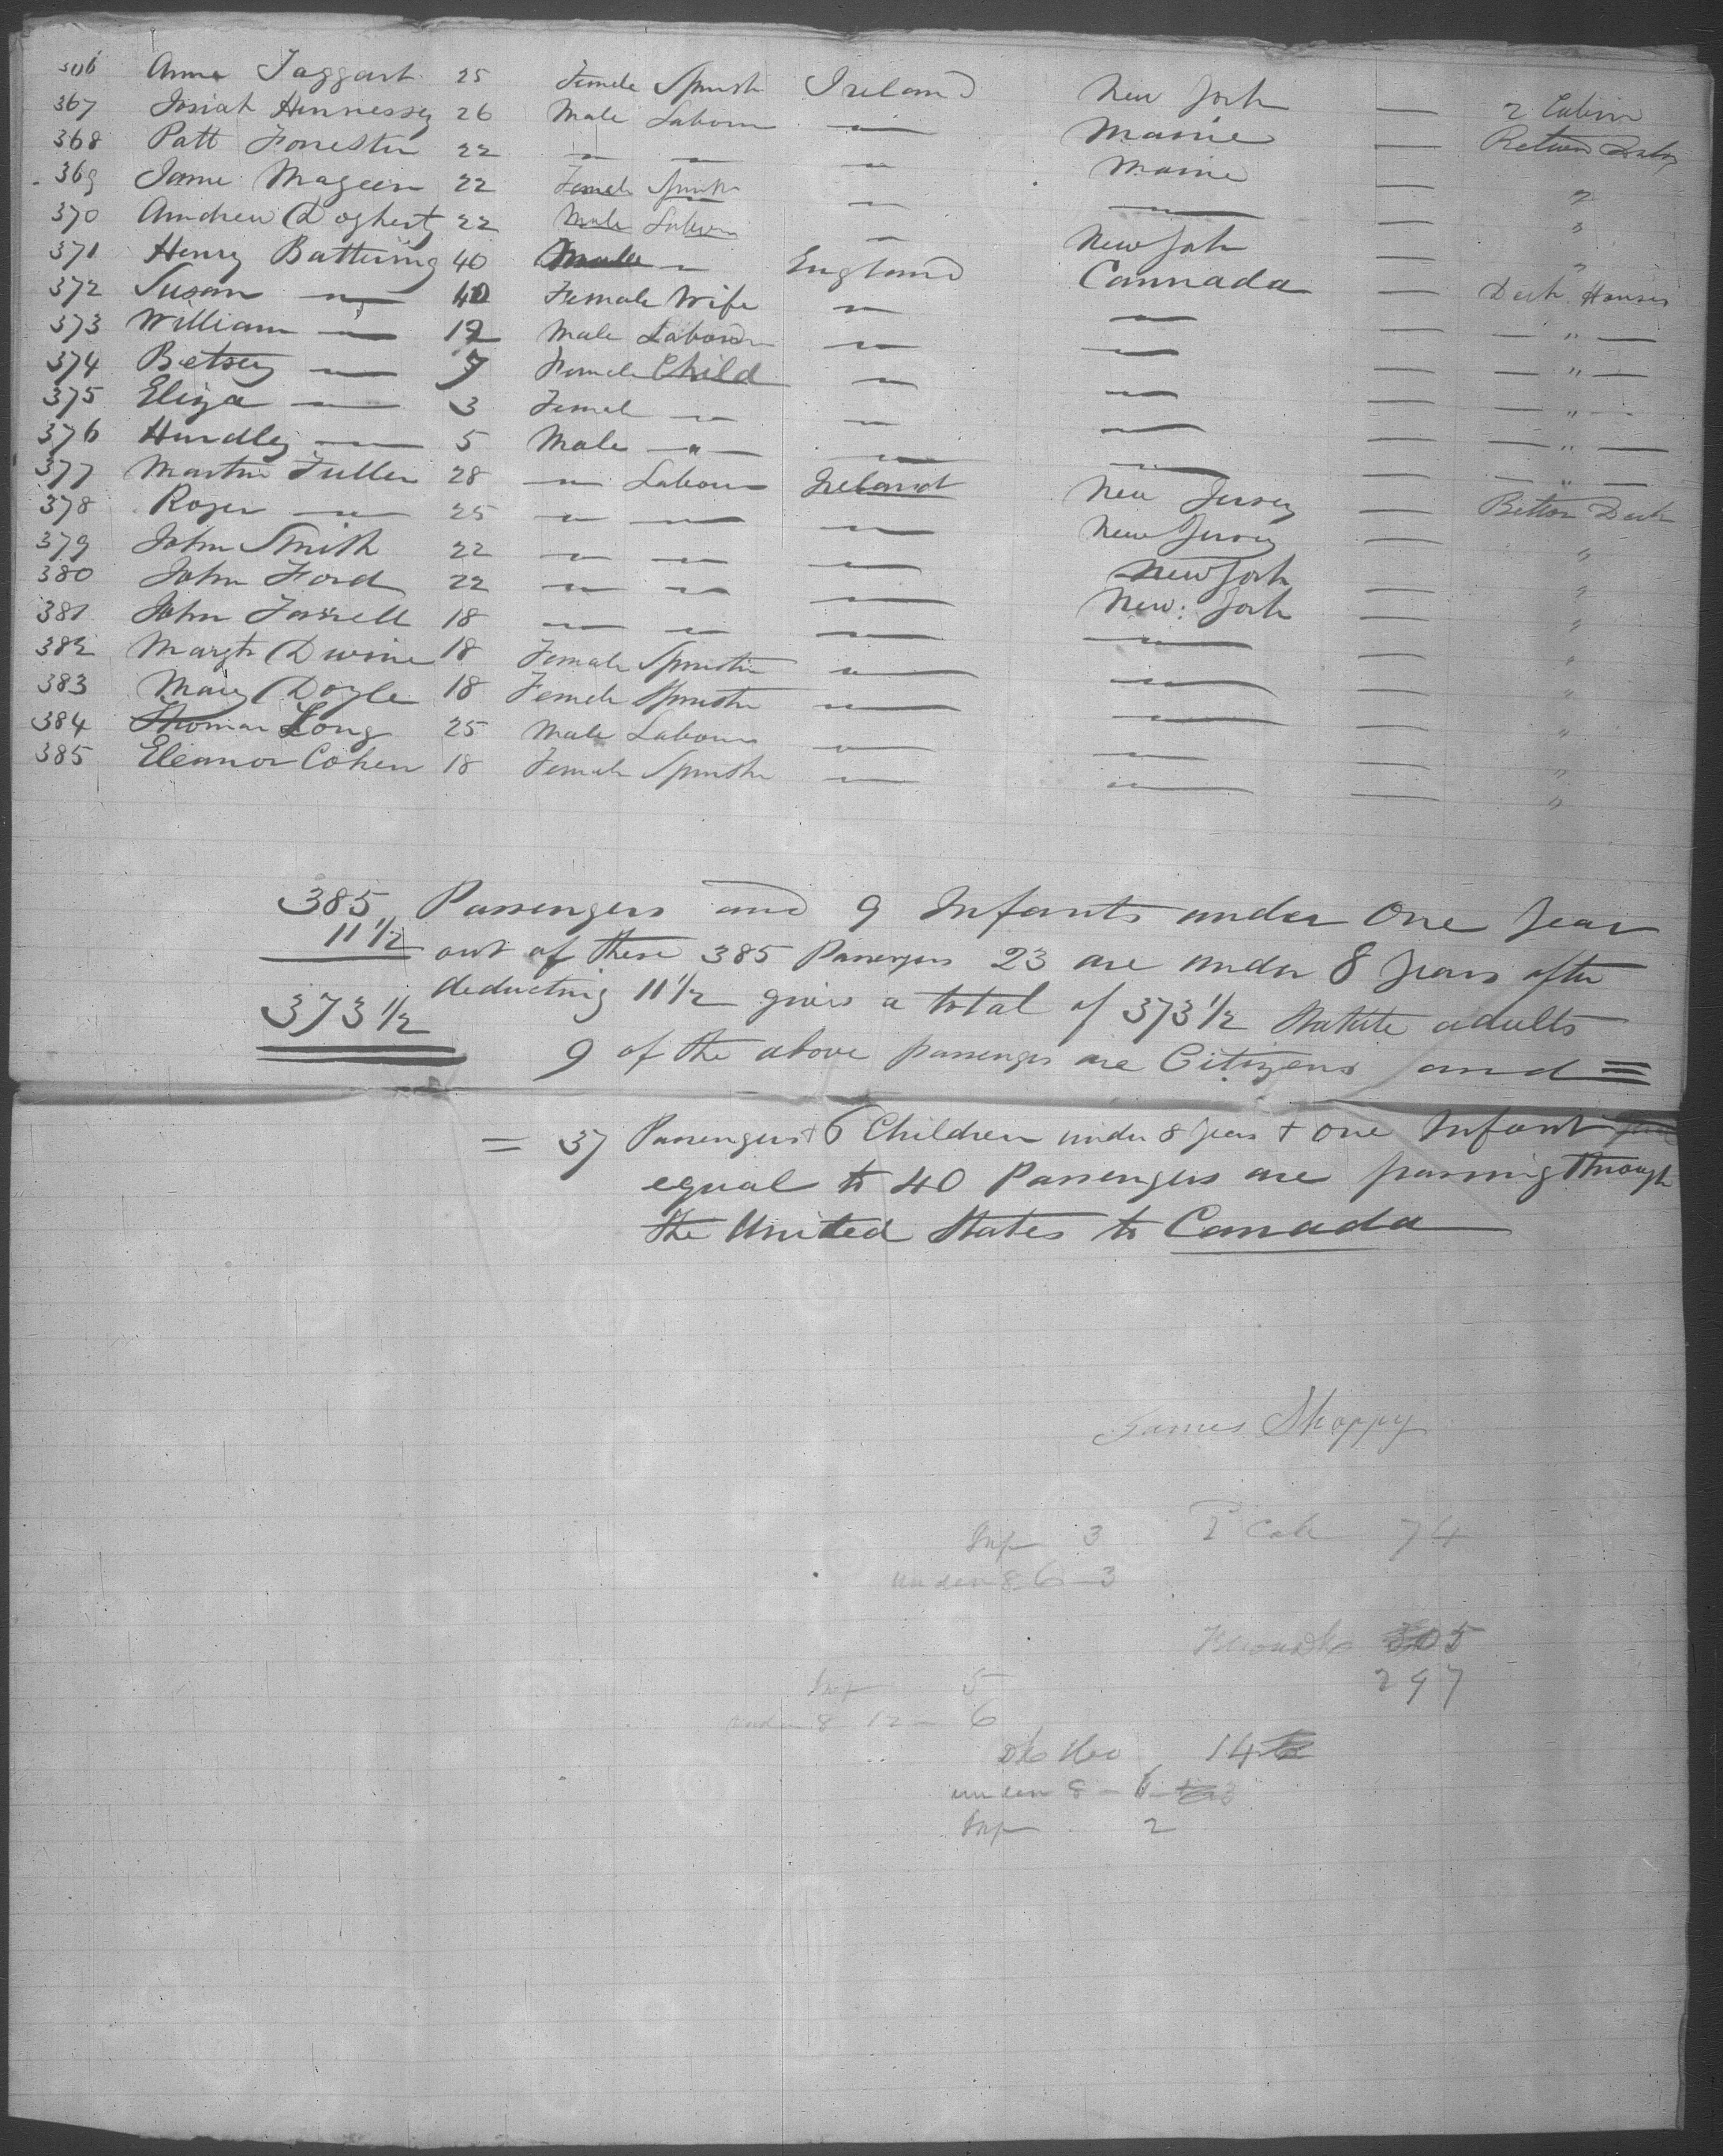 366 Anne Taggart 25 Female Spinstr Ireland New York — 2 Cabin
367 Josiah Hennessey 26 Male Labour — Maine — Between Decks
368 Patt Forrester 22 — — — Maine — "
369 Jame Mageen 22 Female Spinstr — — — "
370 Andrew Doghert 22 Male Labour — New York — "
371 Henry Battering 40 Male — England Cannada — Deck Houses
372 Susan — 40 Female Wife — — — — " —
373 William — 12 Male Labour — — — — " —
374 Betsey — 7 Female Child — — — — " —
375 Eliza — 3 Female — — — — — " —
376 Hurdley — 5 Male — " — — — — — " —
377 Martin Fullen 28 — Labour Ireland New Jersey — Betten Deck
378 Roger — 25 — — — New Jersey — "
379 John Smith 22 — — — New York — "
380 John Ford 22 — — — New York — "
381 John Farrell 18 — — — — — "
382 Margt Dwine 18 Female Spinster — — — "
383 Mary Doyle 18 Female Spinster — — — "
384 Thomas Long 25 Male Labour — — — "
385 Eleanor Cohen 18 Female Spinster — — — "
385 Passengers and 9 Infants under One Year
11 1/2 out of these 385 Passengers 23 are under 8 years after
deducting 11 1/2 gives a total of 373 1/2 Statute adults
373 1/2
9 of the above passengers are Citizens and =
= 37 Passengers + 6 Children under 8 years + one Infant
equal to 40 Passengers are passing through
the United States to Canada
James Shoppy
Inf 3 2 Cab 74
under 8 6 - 3
305
297
Inf 5
under 8 12 - 6
Dk Ho 14
under 8 - 6 - 3
Inf 2